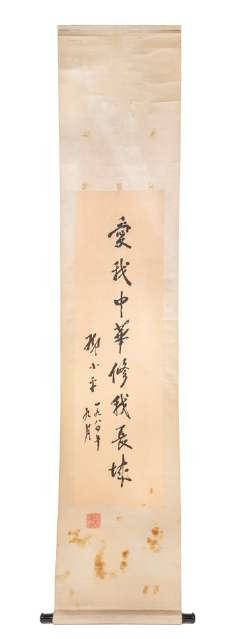 愛我中華修我長城
邓小平
一九八四年
九月